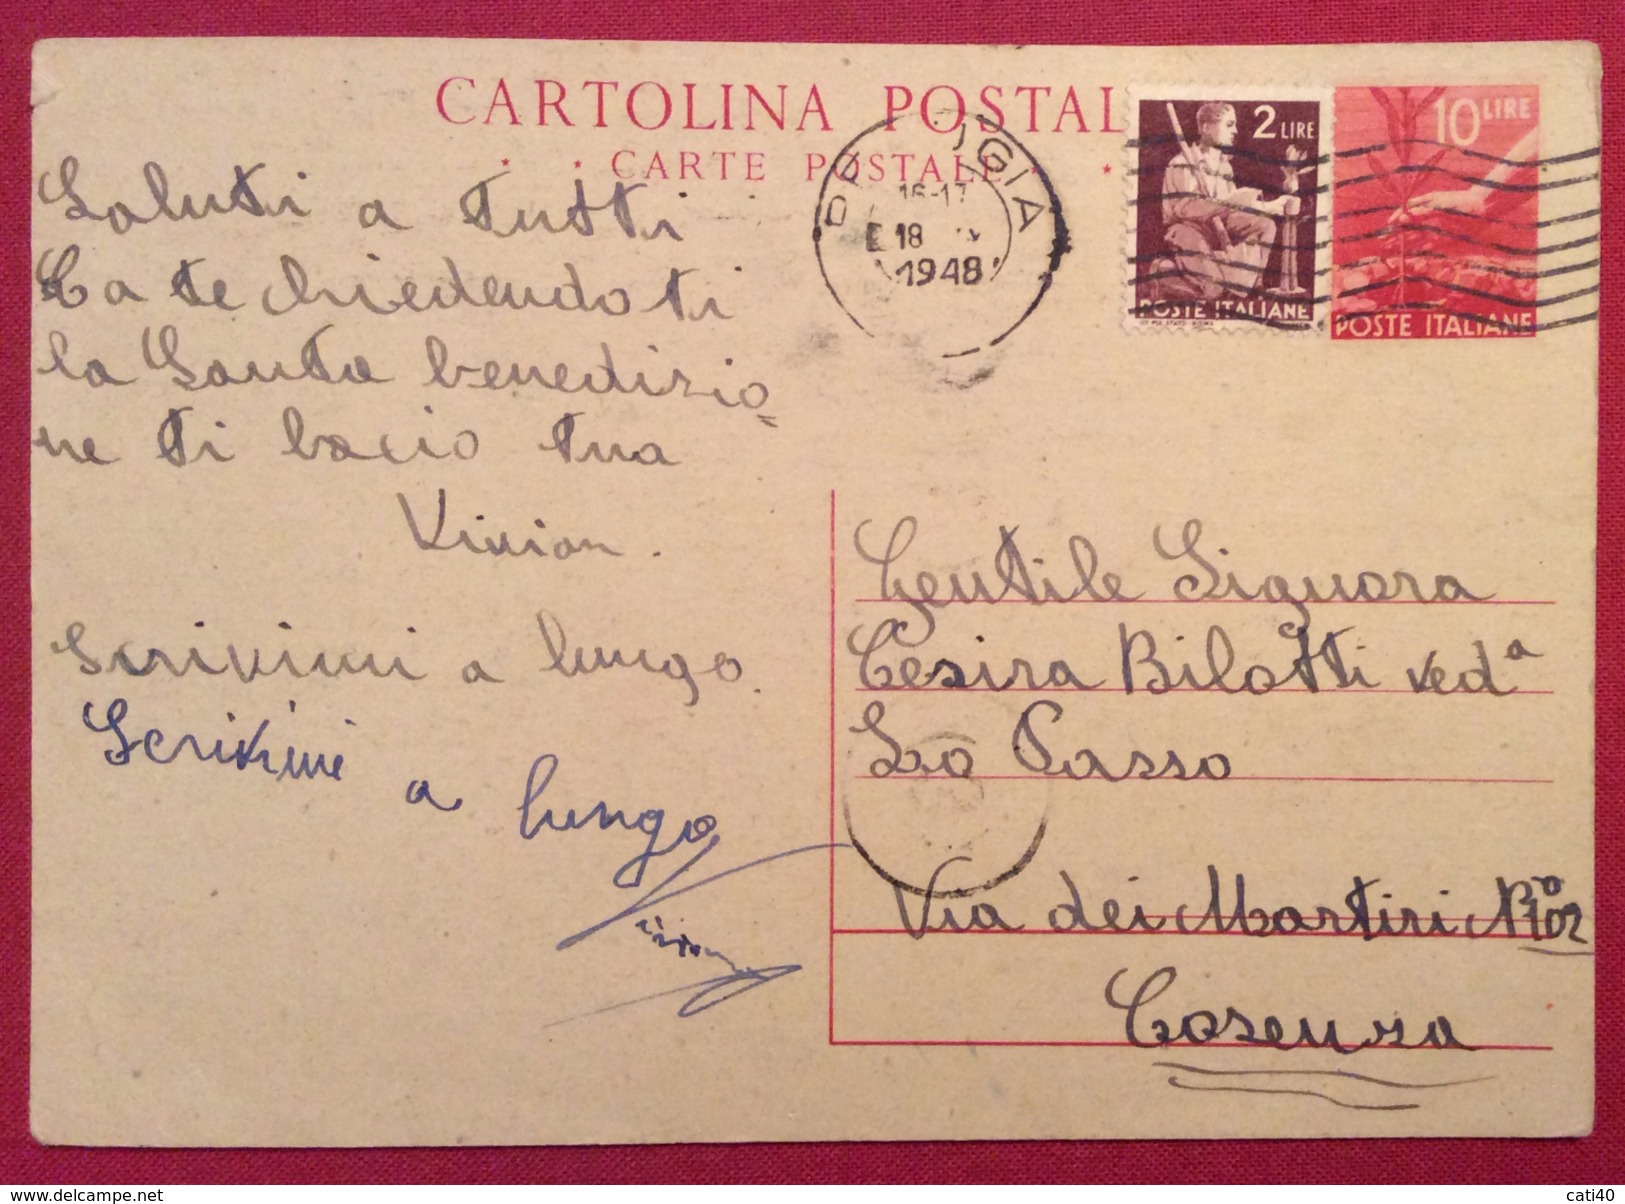 CARTOLINA POSTAL
CARTE POSTALE
2 LIRE
10 LIRE
POSTE ITALIANE
POSTE ITALIANE
16-17
18
1948
Saluti a tutti
Ea te chiedendoti
la Santa benedizio=
ne ti bacio tua
Vivian.
Scrivimi a lungo.
Scrivimi
a lungo
Vivian
Gentile Signora
Cesira Bilotti ved.a
Lo Passo
Via dei Martiri No 102
Cosenza
cati40